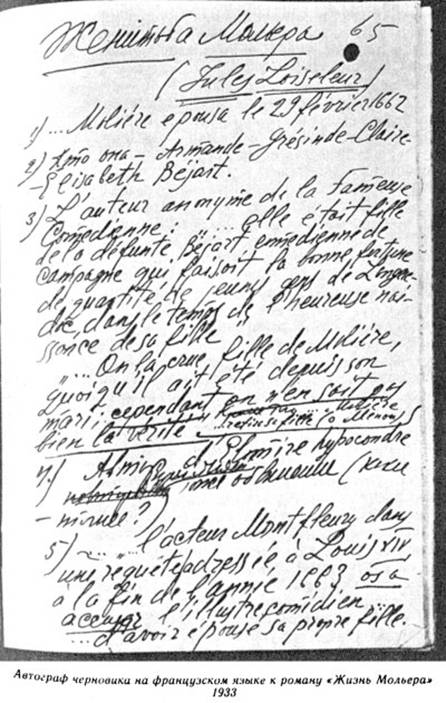 Женитьба Мольера 65
(Jules Loiseleur)
1) ... Molière épousa le 29 février 1662
2) Кто она – Armande-Grésinde-Claire-
-Elisabeth Béjart.
3) L'auteur anonyme de la Fameuse
Comedienne: "... elle était fille
de la défunte Béjart, comédienne de
campagne qui faisoit la bonne fortune
de quantité de jeunes gens de Langue-
doc, dans le temps de l'heureuse nai-
ssance de sa fille"
"... On la crue fille de Molière,
quoiqu'il ait été depuis son
mari; cependant on n'en sait pas
bien la vérité"
4) d'Elomire hypocondre
обвинение
5) ... l'acteur Montfleury dans
une requête adressée à Louis XIV
à la fin de l'année 1663 osa
accuser l'illustre comédien
... d'avoir épousé sa propre fille.
Автограф черновика на французском языке к роману «Жизнь Мольера»
1933